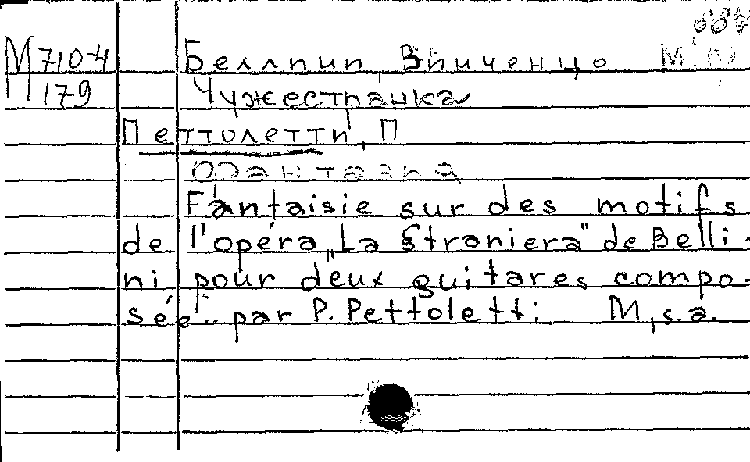 М 710-4 Беллини, Винченцо
П 179 Чужестранка
Петтолетти, П
Фантазия
Fantaisie sur des motifs
de l'opéra „La Straniera" de Belli-
ni pour deux guitares compo-
sée.. par P. Pettoletti M, s.a.